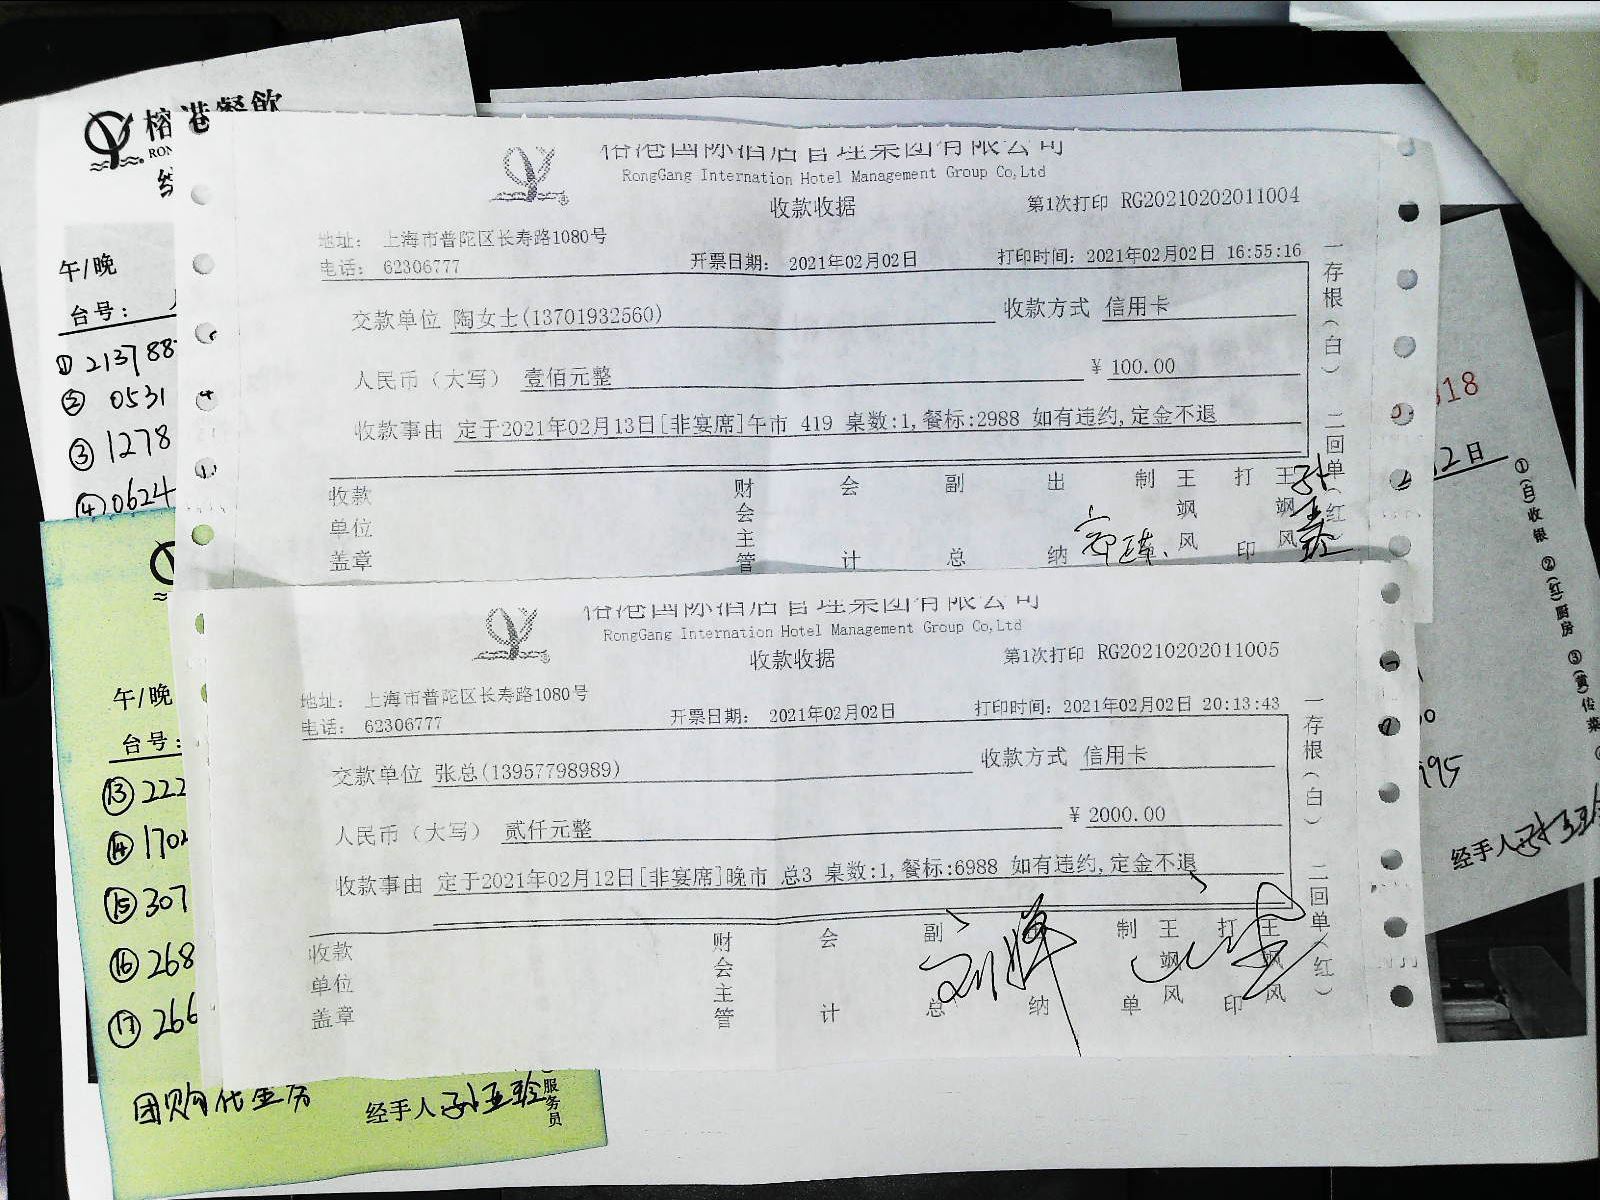 榕港餐飲
午/晚
台号：
① 213788
② 0531
③ 1278
④ 0624
榕港国际酒店管理集团有限公司
RongGang Internation Hotel Management Group Co,Ltd
收款收据
第1次打印 RG20210202011004
地址： 上海市普陀区长寿路1080号
电话： 62306777
开票日期： 2021年02月02日
打印时间：2021年02月02日 16:55:16
交款单位 陶女士(13701932560)
收款方式 信用卡
人民币（大写） 壹佰元整
¥ 100.00
收款事由 定于2021年02月13日[非宴席]午市 419 桌数:1,餐标:2988 如有违约,定金不退
收款单位盖章 财会主管 会计 副总 出纳 制 王飒风 打印 王飒风
一存根(白) 二回单(红)
榕港国际酒店管理集团有限公司
RongGang Internation Hotel Management Group Co,Ltd
收款收据
第1次打印 RG20210202011005
地址： 上海市普陀区长寿路1080号
电话： 62306777
开票日期： 2021年02月02日
打印时间：2021年02月02日 20:13:43
交款单位 张总(13957798989)
收款方式 信用卡
人民币（大写） 贰仟元整
¥ 2000.00
收款事由 定于2021年02月12日[非宴席]晚市 总3 桌数:1,餐标:6988 如有违约,定金不退
收款单位盖章 财会主管 会计 副总 纳 制单 王飒风 打印 王飒风
一存根(白) 二回单(红)
午/晚
台号：
⑬ 222
⑭ 170
⑮ 307
⑯ 268
⑰ 266
团购代金券
经手人
服务员
18
2日
①(白)收银 ②(红)厨房 ③(黄)传菜
195
经手人